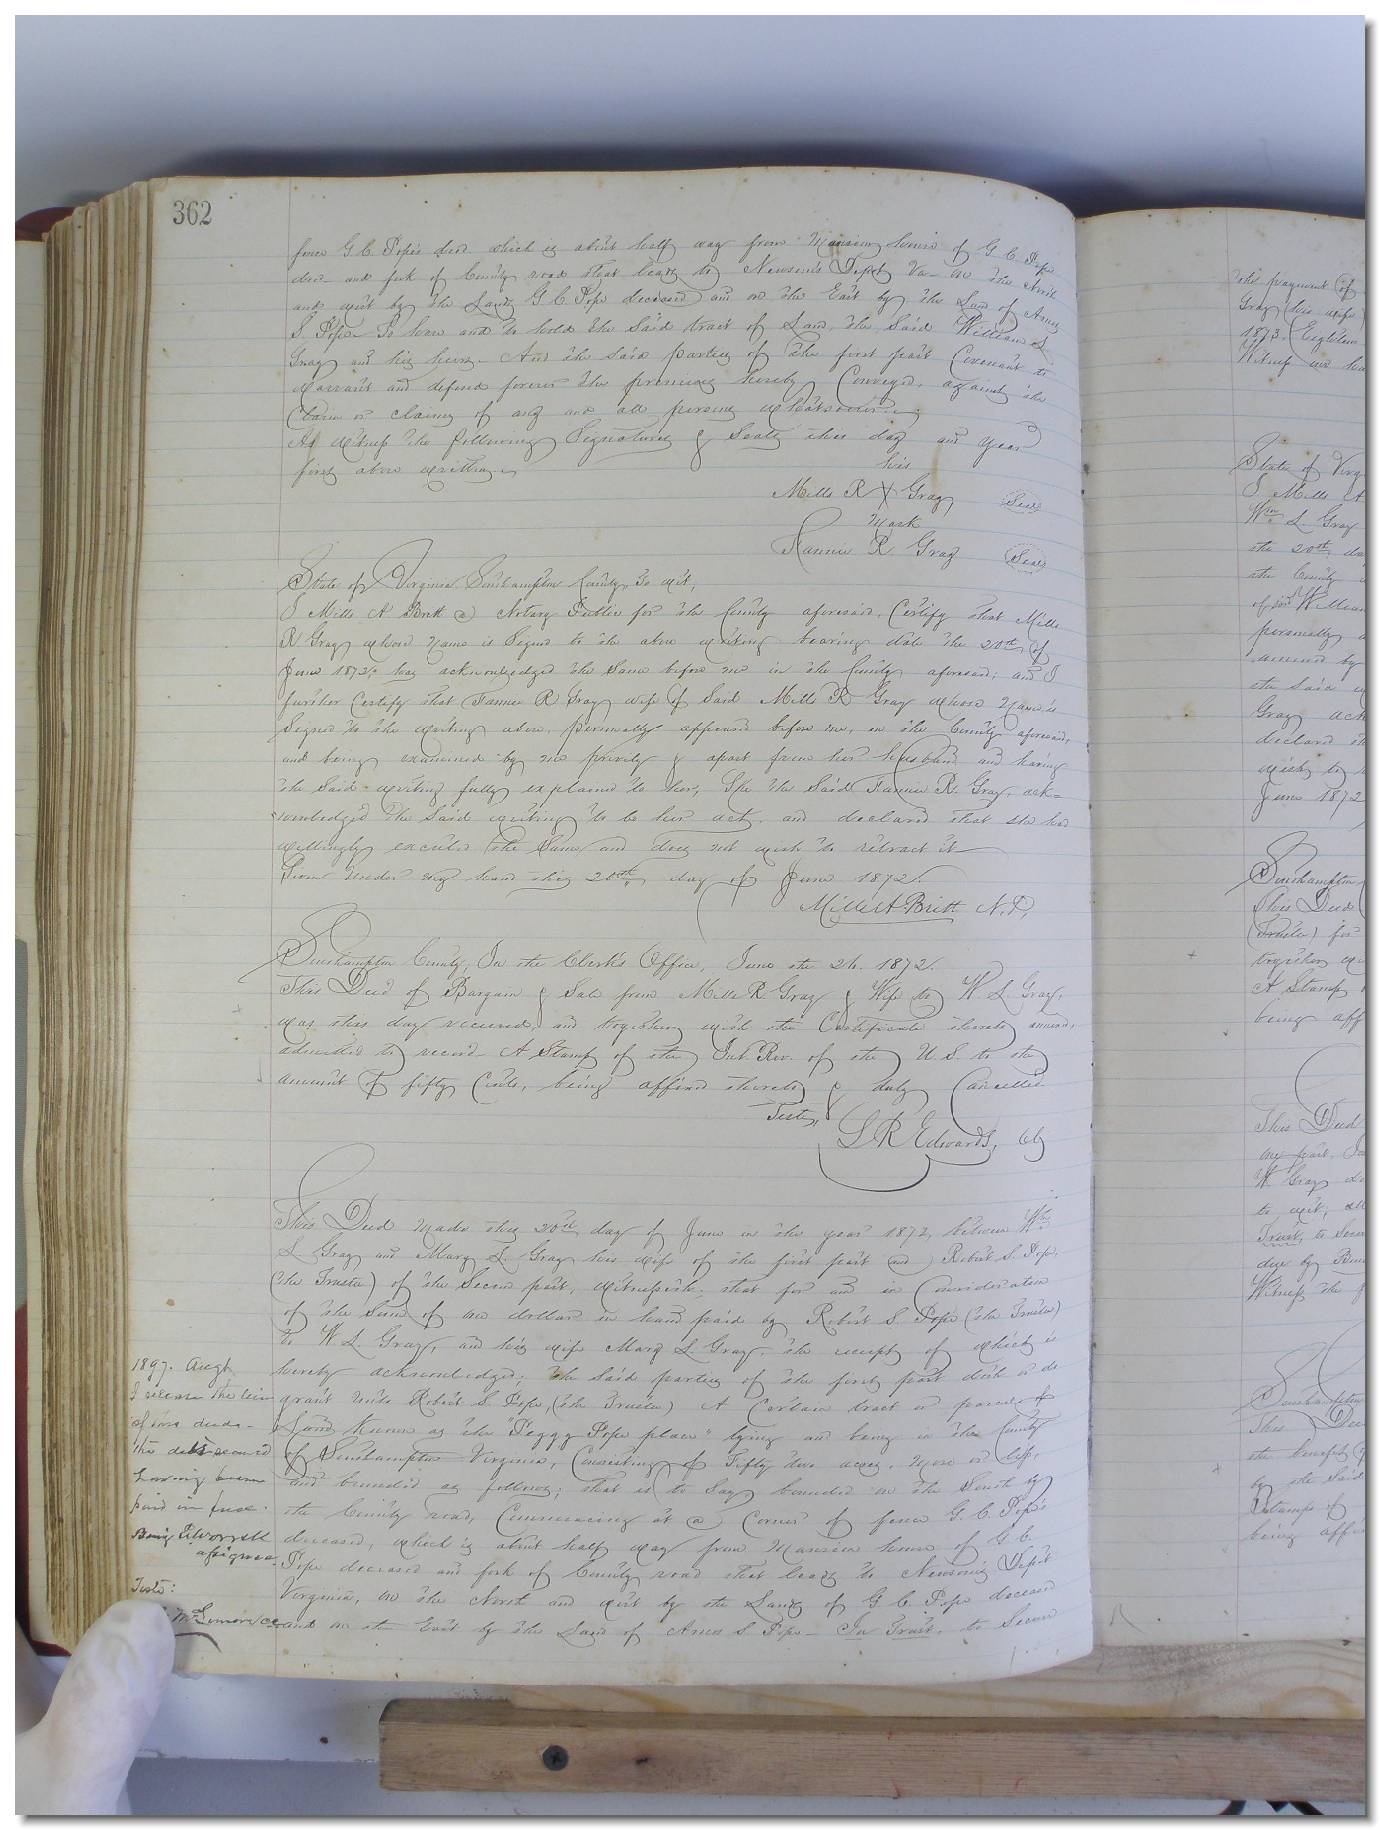 362
fence G. C. Pope's decd which is about half way from Mansion house of G. C. Pope
decd and fork of County road that leads to Newsom's Depot Va on the North
and west by the Lands G C Pope deceased and on the East by the Land of Amos
S Pope. To have and to hold the said tract of Land, the said William L
Gray and his heirs. And the said parties of the first part Covenant to
warrant and defend forever the premises hereby Conveyed, against the
Claim or claims of any and all persons whatsoever.
As witness the following Signatures & Seals this day and year
first above written.
his
Mills R X Gray Seal
mark
Fannie R Gray Seal
State of Virginia Southampton County, To wit,
I Mills A Britt a Notary Public for the County aforesaid, Certify that Mills
R Gray whose name is Signed to the above writing bearing date the 20th of
June 1872, has acknowledged the Same before me in the County aforesaid; and I
further Certify that Fannie R Gray wife of Said Mills R Gray whose Name is
Signed to the writing above, personally appeared before me, in the County aforesaid,
and being examined by me privily & apart from her husband and having
the Said writing fully explained to her, She the Said Fannie R. Gray, ack-
nowledged the Said writing to be her act, and declared that she had
willingly executed the Same and does not wish to retract it
Given under my hand this 20th day of June 1872.
Mills A. Britt N.P.
Southampton County, In the Clerk's Office, June the 26. 1872.
This Deed of Bargain & Sale from Mills R. Gray & Wife to W L Gray,
was this day received, and together with the Certificate thereto annexed,
admitted to record. A Stamp of the Int. Rev. of the U. S. to the
amount of fifty Cents, being affixed thereto & duly Cancelled.
Teste,
L R Edwards, Clk
This Deed made this 20th day of June in the year 1872, between Wm
L Gray and Mary L. Gray his wife of the first part and Robert S. Pope,
(the Trustee) of the Second part, witnesseth, that for and in Consideration
of the Sum of one dollar in hand paid by Robert S. Pope (the Trustee)
to W L. Gray, and his wife Mary L Gray, the receipt of which is
hereby acknowledged; the Said parties of the first part doth or do
grant unto Robert S. Pope, (the Trustee) A Certain tract or parcel of
Land Known as the "Peggy Pope place" lying and being in the County
of Southampton Virginia, Consisting of Fifty two acres, more or less,
and bounded as follows; that is to Say bounded on the South by
the County road, Commencing at a Corner of fence G. C. Pope's
deceased, which is about half way from Mansion house of G. C.
Pope deceased and fork of County road that leads to Newsom's Depot
Virginia, on the North and west by the Lands of G C Pope deceased
and on the East by the Land of Amos S Pope – In Trust, to Secure
1897. Augt
I release the lein
of this deed -
the debt secured
having been
paid in full.
Worrell
assignee
Teste:
the payment of
Gray (his wife)
1873. Eighteen
Witness our
State of Virg
I Mills A
Wm L. Gray
the 20th da
the County
of said William
personally a
annexed by
the said
Gray ack
declared th
wish to
June 1872
Southampton
This Deed
(Trustee) for
together w
A Stamp
being aff
This Deed
one part,
W Gray
to wit, all
Trust, to Secu
due by
Witness the f
Southampton
This Deed
the benefit
by the Said
Stamps of
being affi